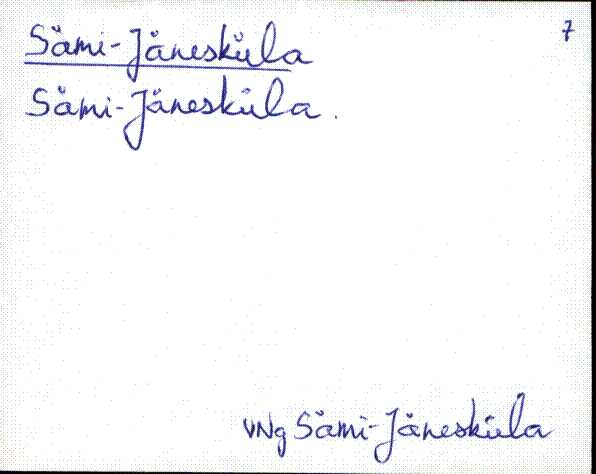 Sämi-Jänesküla 7
Sämi-Jänesküla.
VNg Sämi-Jänesküla